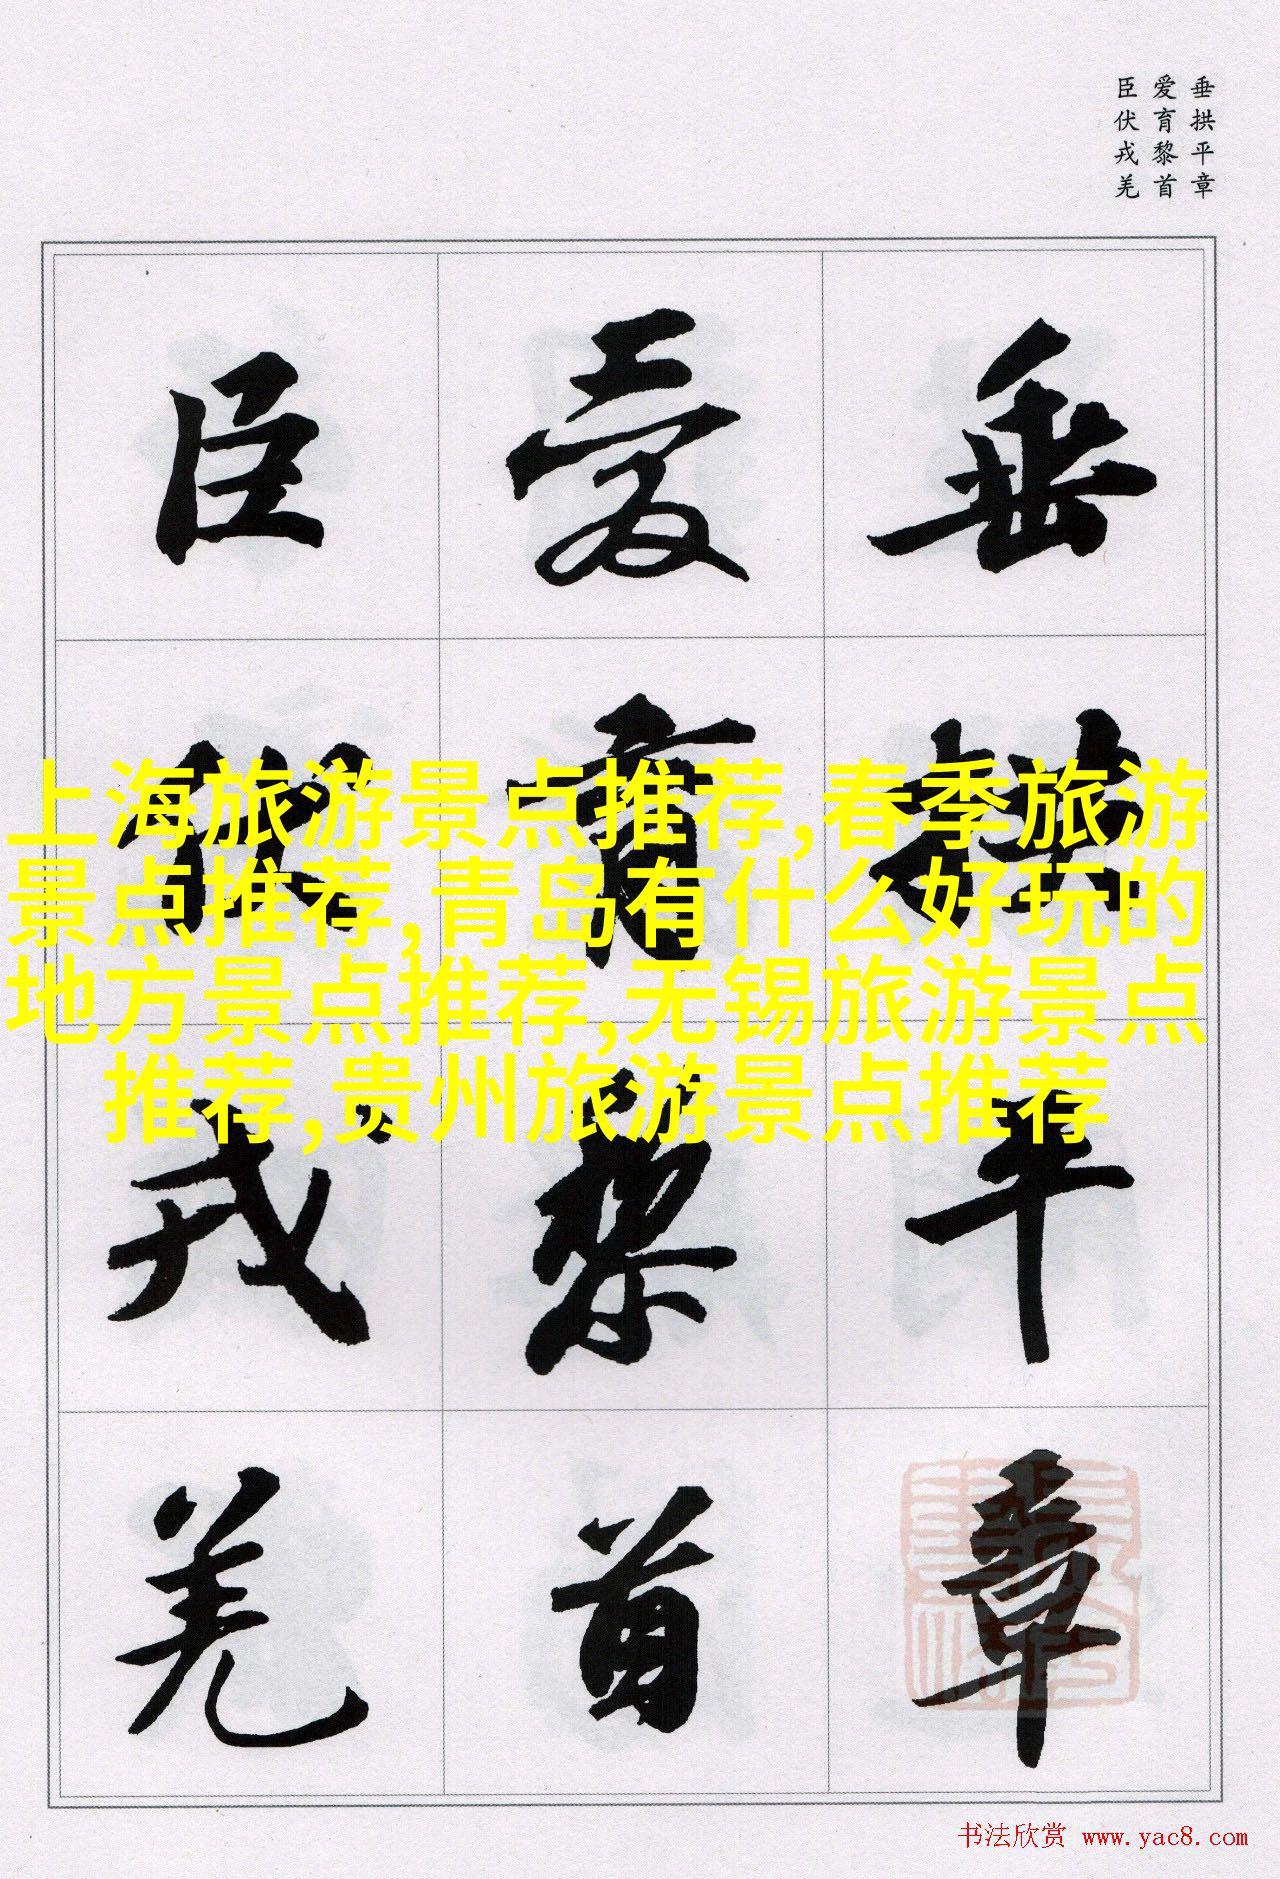 垂拱平章
爱育黎首
臣伏戎羌
垂拱平章
爱育黎首
臣伏戎羌
上海旅游景点推荐,春季旅游
景点推荐,青岛有什么好玩的
地方景点推荐,无锡旅游景点
推荐,贵州旅游景点推荐
书法欣赏 www.yac8.com